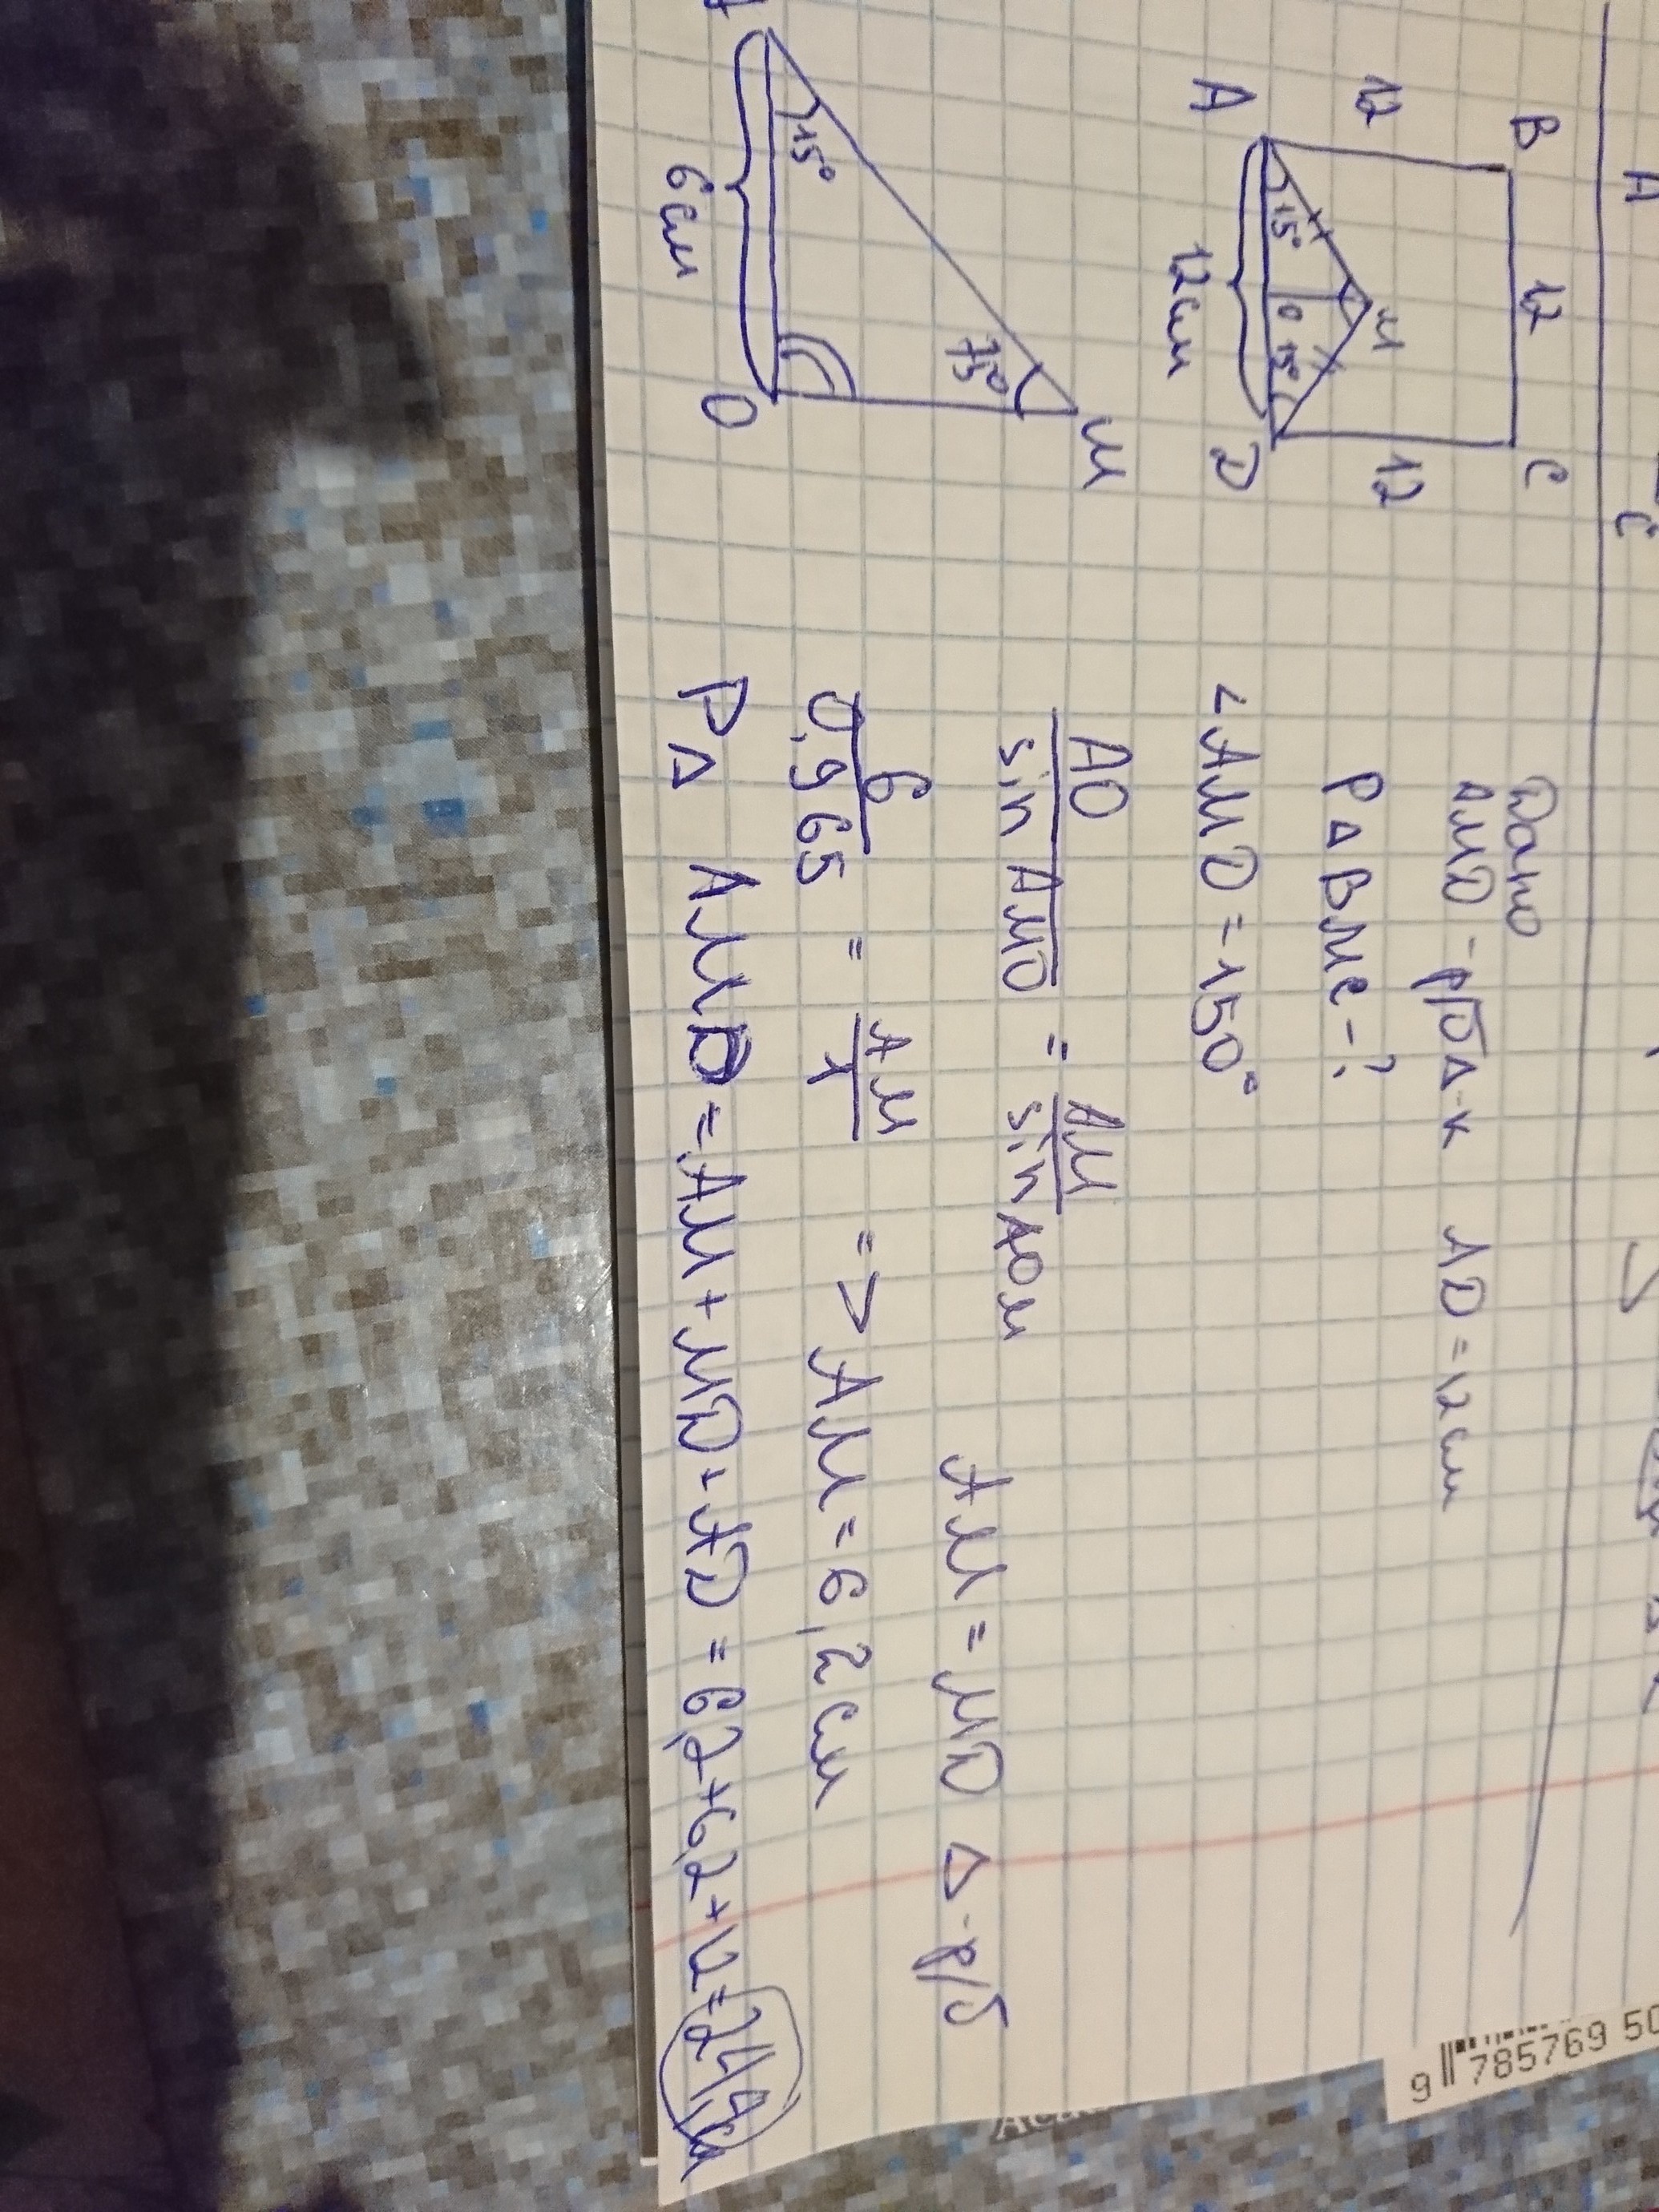 A
C
B
12
C
12
12
M
15°
O
15°
A
12см
D
Дано
AMD - р/б Δ-к AD = 12 см
P Δ BMC - ?
∠AMD = 150°
AO / sin AMO = AM / sin AOM
AM = MD Δ - р/б
6 / 0,965 = AM / 1 => AM = 6,2 см
PΔ AMD = AM + MD + AD = 6,2+6,2+12=24,4см
M
75°
15°
O
6 см
9 785769 50